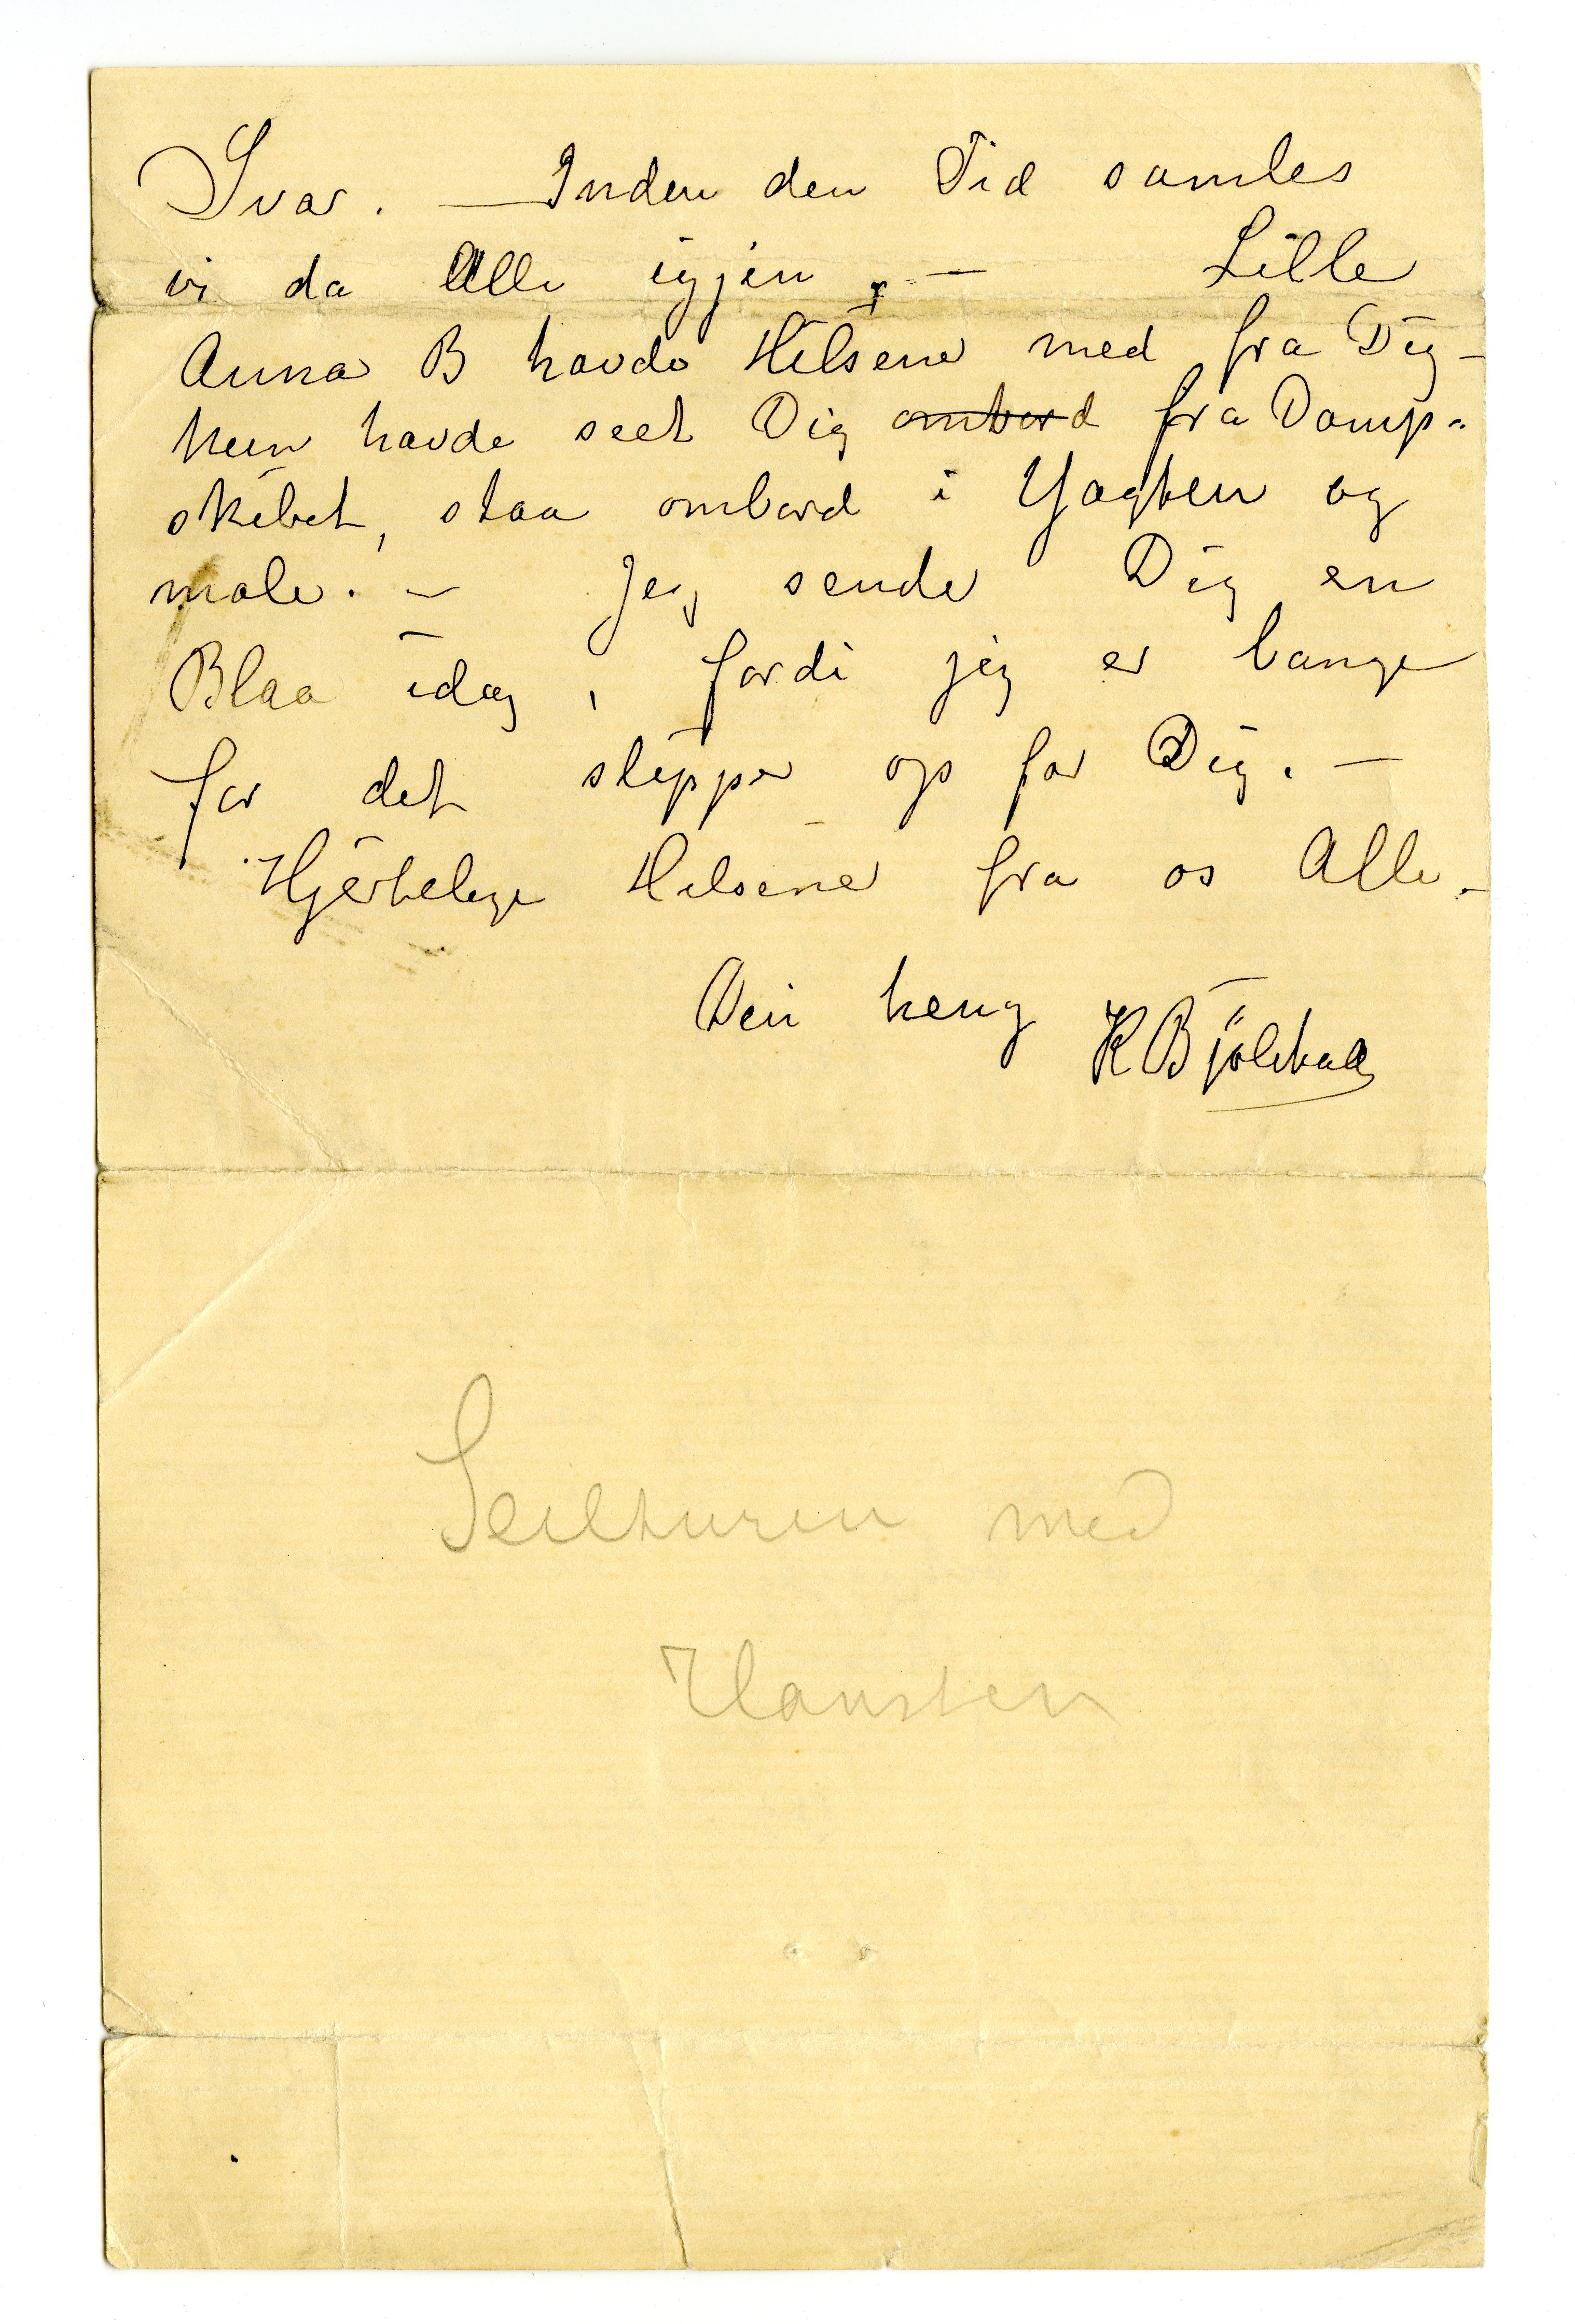 Svar. — Inden den Tid samles
vi da Alle igjen. — Lille
Anna B havde Hilsene med fra Dig –
hun havde seet Dig ombord fra Damp-
skibet, staa ombord i Yagten og
male. – Jeg sender Dig en
Blaa idag, fordi jeg er bange
for det slipper op for Dig. —
Hjertelige Hilsener fra os Alle. –
Din heng
K Bjölstad
Seilturen med
Hansten